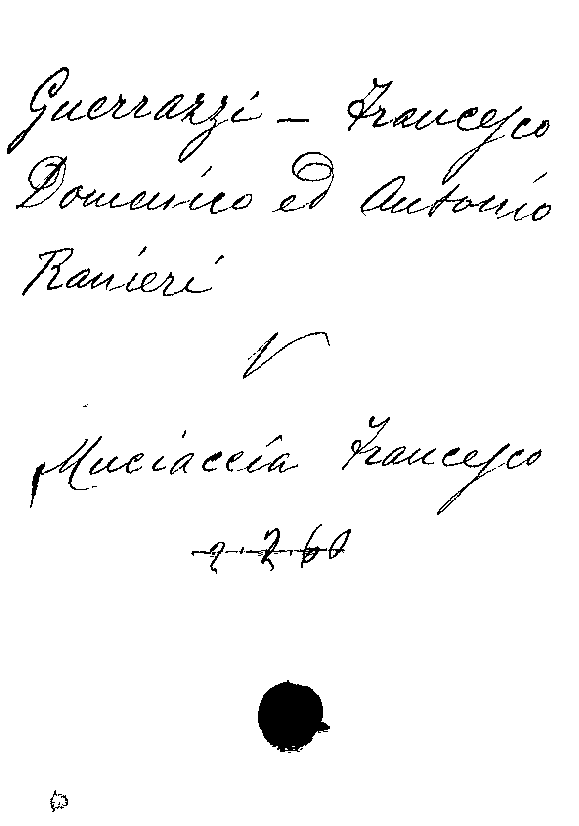 Guerrazzi - Francesco
Domenico ed Antonio
Ranieri
V
Muciaccia Francesco
2.2.60